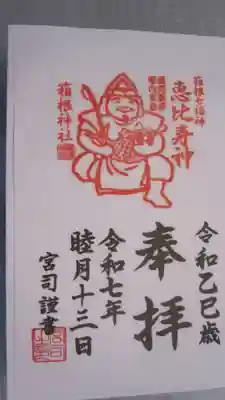 箱根七福神
恵比寿神
箱根神社
令和乙巳歳
奉拝
令和七年
睦月十三日
宮司謹書